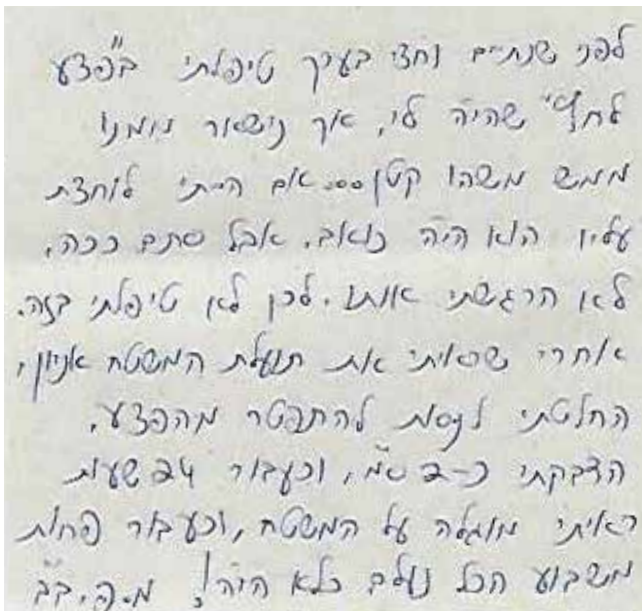 לפני שנתיים וחצי בערך טיפלתי ב"פצע
לחץ" שהיה לי, אך נישאר ממנו
ממש משהו קטן... אם הייתי לוחצת
עליו הוא היה כואב. אבל סתם ככה,
לא הרגשתי אותו. לכן לא טיפלתי בזה.
אחרי שראיתי את תועלת המשטח אניון,
החלטתי לנסות להתפטר מהפצע.
הדבקתי כ-2 ס"מ, וכעבור 24 שעות
ראיתי מוגלה על המשטח, וכעבור פחות
משבוע הכל נעלם כלא היה! מ.פ. ב"ב